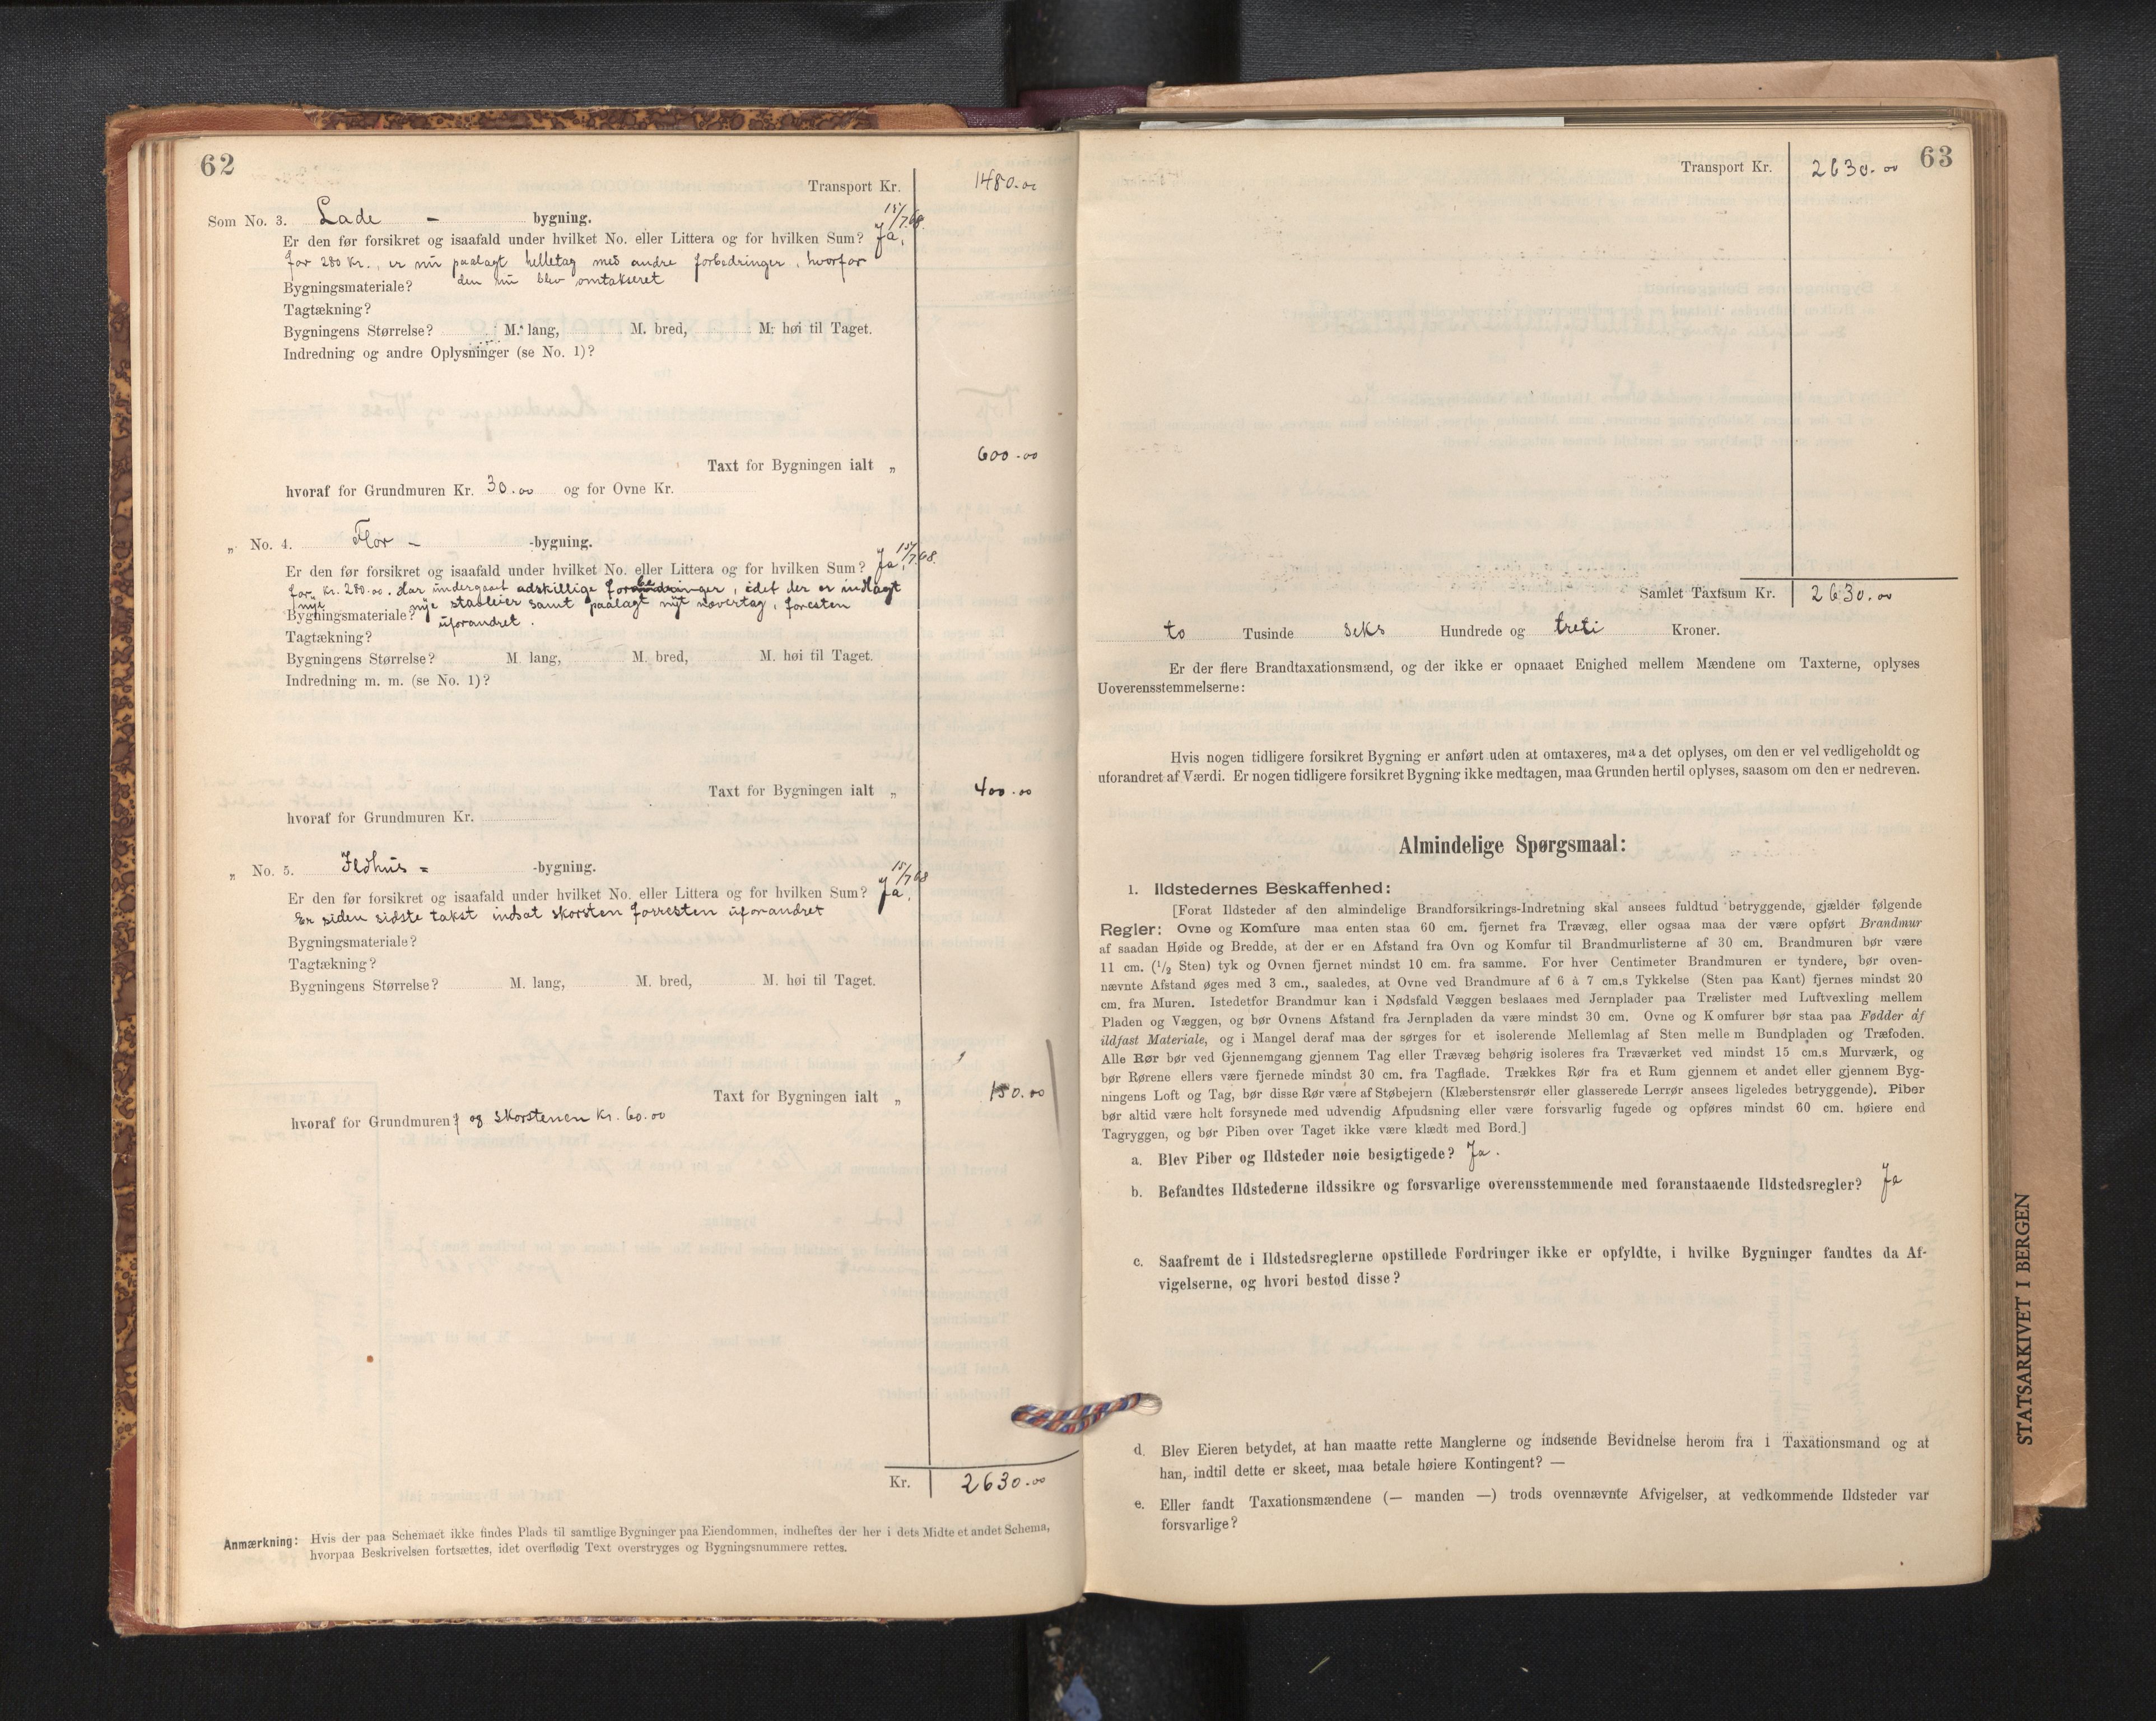 62
Transport Kr. 1480.00
Som No. 3. Lade - bygning.
15/7.68.
Er den før forsikret og isaafald under hvilket No. eller Littera og for hvilken Sum? Ja,
for 280 Kr., er nu paalagt helletag med andre forbedringer, hvorfor
den nu blev omtakseret
Bygningsmateriale?
Tagtækning?
Bygningens Størrelse? M. lang, M. bred, M. høi til Taget.
Indredning og andre Oplysninger (se No. 1)?
Taxt for Bygningen ialt „ 600.00
hvoraf for Grundmuren Kr. 30.00 og for Ovne Kr.
„ No. 4. Flor - -bygning.
15/7.68.
Er den før forsikret og isaafald under hvilket No. eller Littera og for hvilken Sum? Ja,
for Kr. 280.00. Har undergaaet adskillige forbedringer, idet der er indlagt
nye
Bygningsmateriale? nye stasleier samt paalagt nyt nævertag, foresten
uforandret.
Tagtækning?
Bygningens Størrelse? M. lang, M. bred, M. høi til Taget.
Indredning m. m. (se No. 1)?
Taxt for Bygningen ialt „ 400.00
hvoraf for Grundmuren Kr.
„ No. 5. Ildhus - -bygning.
15/7 68
Er den før forsikret og isaafald under hvilket No. eller Littera og for hvilken Sum? Ja.
Er siden sidste takst indsat skorsten forresten uforandret
Bygningsmateriale?
Tagtækning?
Bygningens Størrelse? M. lang, M. bred, M. høi til Taget.
Taxt for Bygningen ialt „ 150.00
hvoraf for Grundmuren og skorstenen Kr. 60.00
Kr. 2630.00
Anmærkning: Hvis der paa Schemaet ikke findes Plads til samtlige Bygninger paa Eiendommen, indheftes der her i dets Midte et andet Schema,
hvorpaa Beskrivelsen fortsættes, idet overflødig Text overstryges og Bygningsnummere rettes.
63
Transport Kr. 2630.00
Samlet Taxtsum Kr. 2630.00
to Tusinde seks Hundrede og treti Kroner.
Er der flere Brandtaxationsmænd, og der ikke er opnaaet Enighed mellem Mændene om Taxterne, oplyses
Uoverensstemmelserne:
Hvis nogen tidligere forsikret Bygning er anført uden at omtaxeres, maa det oplyses, om den er vel vedligeholdt og
uforandret af Værdi. Er nogen tidligere forsikret Bygning ikke medtagen, maa Grunden hertil oplyses, saasom om den er nedreven.
Almindelige Spørgsmaal:
1. Ildstedernes Beskaffenhed:
[Forat Ildsteder af den almindelige Brandforsikrings-Indretning skal ansees fuldtud betryggende, gjælder følgende
Regler: Ovne og Komfure maa enten staa 60 cm. fjernet fra Trævæg, eller ogsaa maa der være opført Brandmur
af saadan Høide og Bredde, at der er en Afstand fra Ovn og Komfur til Brandmurlisterne af 30 cm. Brandmuren bør være
11 cm. (1/2 Sten) tyk og Ovnen fjernet mindst 10 cm. fra samme. For hver Centimeter Brandmuren er tyndere, bør oven-
nævnte Afstand øges med 3 cm., saaledes, at Ovne ved Brandmure af 6 à 7 cm.s Tykkelse (Sten paa Kant) fjernes mindst 20
cm. fra Muren. Istedetfor Brandmur kan i Nødsfald Væggen beslaaes med Jernplader paa Trælister med Luftvexling mellem
Pladen og Væggen, og bør Ovnens Afstand fra Jernpladen da være mindst 30 cm. Ovne og Komfurer bør staa paa Fødder af
ildfast Materiale, og i Mangel deraf maa der sørges for et isolerende Mellemlag af Sten mellem Bundpladen og Træfoden.
Alle Rør bør ved Gjennemgang gjennem Tag eller Trævæg behørig isoleres fra Træværket ved mindst 15 cm.s Murværk, og
bør Rørene ellers være fjernede mindst 30 cm. fra Tagflade. Trækkes Rør fra et Rum gjennem et andet eller gjennem Byg-
ningens Loft og Tag, bør disse Rør være af Støbejern (Klæberstensrør eller glasserede Lerrør ansees ligeledes betryggende). Piber
bør altid være helt forsynede med udvendig Afpudsning eller være forsvarlig fugede og opføres mindst 60 cm. høiere end
Tagryggen, og bør Piben over Taget ikke være klædt med Bord.]
a. Blev Piber og Ildsteder nøie besigtigede? Ja.
b. Befandtes Ildstederne ildssikre og forsvarlige overensstemmende med foranstaaende Ildstedsregler? Ja
c. Saafremt de i Ildstedsreglerne opstillede Fordringer ikke er opfyldte, i hvilke Bygninger fandtes da Af-
vigelserne, og hvori bestod disse?
d. Blev Eieren betydet, at han maatte rette Manglerne og indsende Bevidnelse herom fra 1 Taxationsmand og at
han, indtil dette er skeet, maa betale høiere Kontingent? —
e. Eller fandt Taxationsmændene (— manden —) trods ovennævnte Afvigelser, at vedkommende Ildsteder var
forsvarlige?
STATSARKIVET I BERGEN